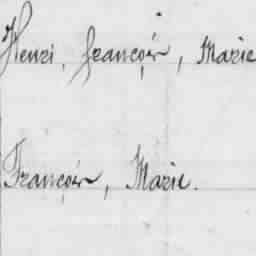 Henri, françois, Marie
François, Marie.